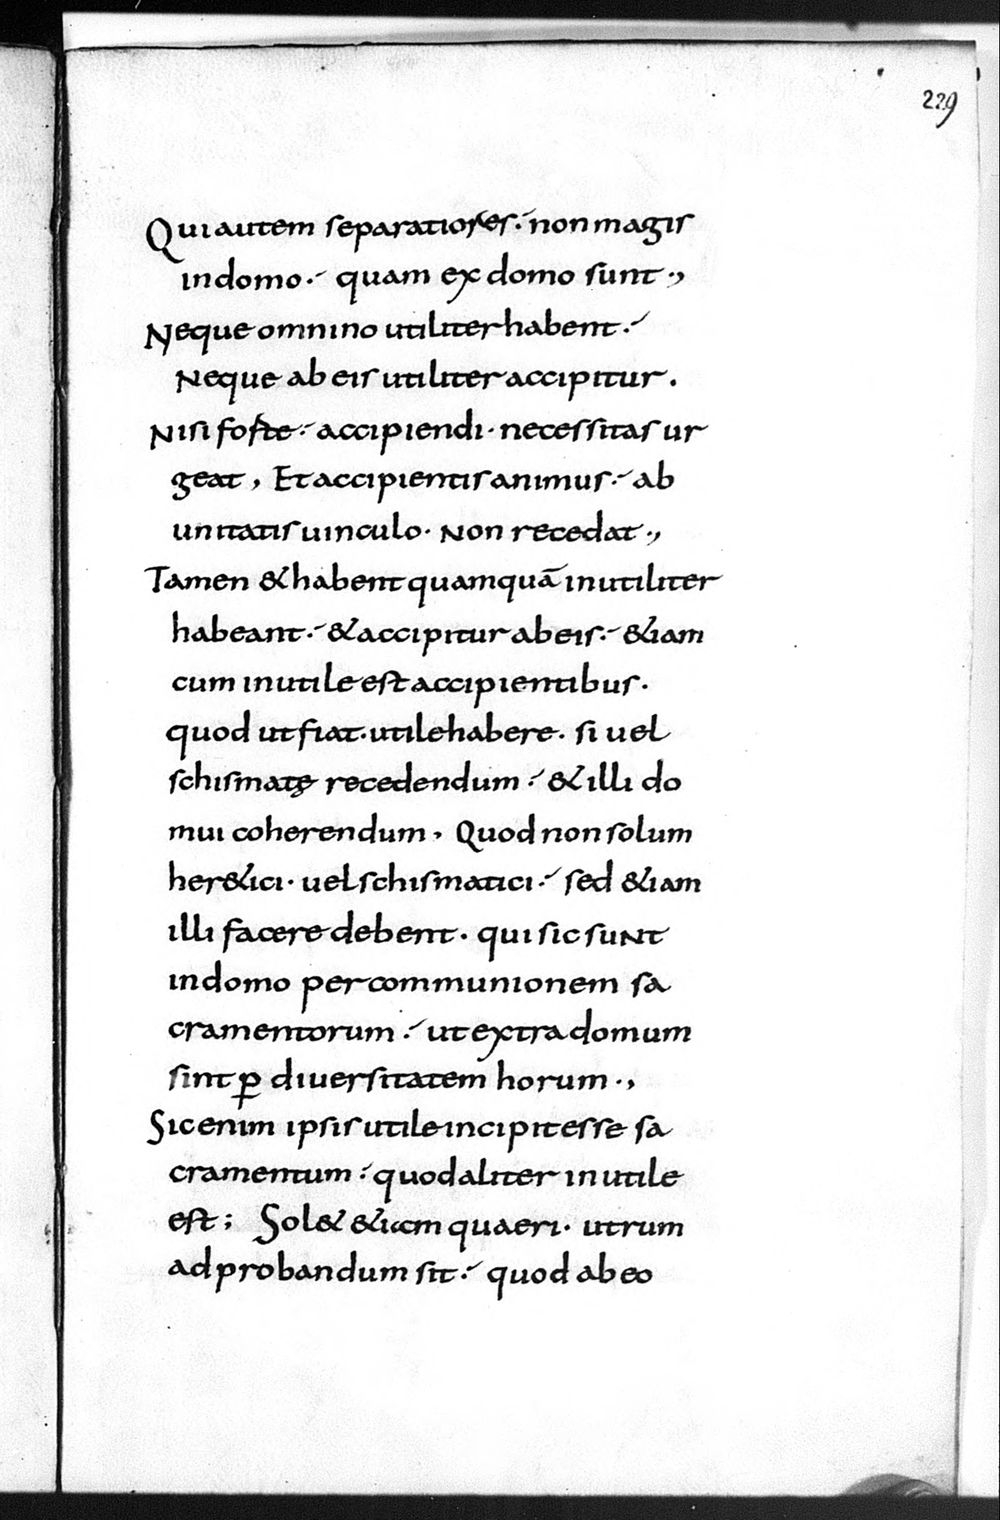 229
Qui autem separatiores. non magis
in domo. quam ex domo sunt.,
Neque omnino utiliter habent.
Neque ab eis utiliter accipitur.
Nisi forte. accipiendi. necessitas ur
geat, Et accipientis animus. ab
unitatis uinculo. Non recedat.,
Tamen & habent quamquā inutiliter
habeant. & accipitur ab eis. &iam
cum inutile est accipientibus.
quod ut fiat. utile habere. si uel
schismatę recedendum. & illi do
mui coherendum, Quod non solum
her&ici. uel schismatici. sed &iam
illi facere debent. qui sic suNt
in domo per communionem sa
cramentorum. ut extra domum
sint ꝑ diuersitatem horum.,
Sic enim ipsis utile incipit esse sa
cramentum. quod aliter inutile
est; Sol& &iam quaeri. utrum
adprobandum sit. quod ab eo